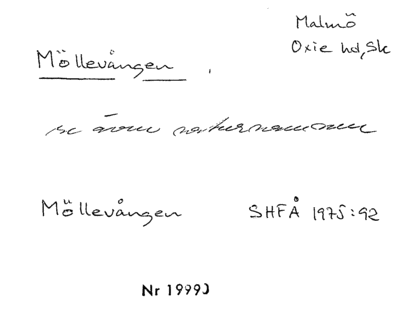 Malmö
Oxie hd, Sk
Möllevången
se även naturnamnen
Möllevången SHFÅ 1975:92
Nr 19990